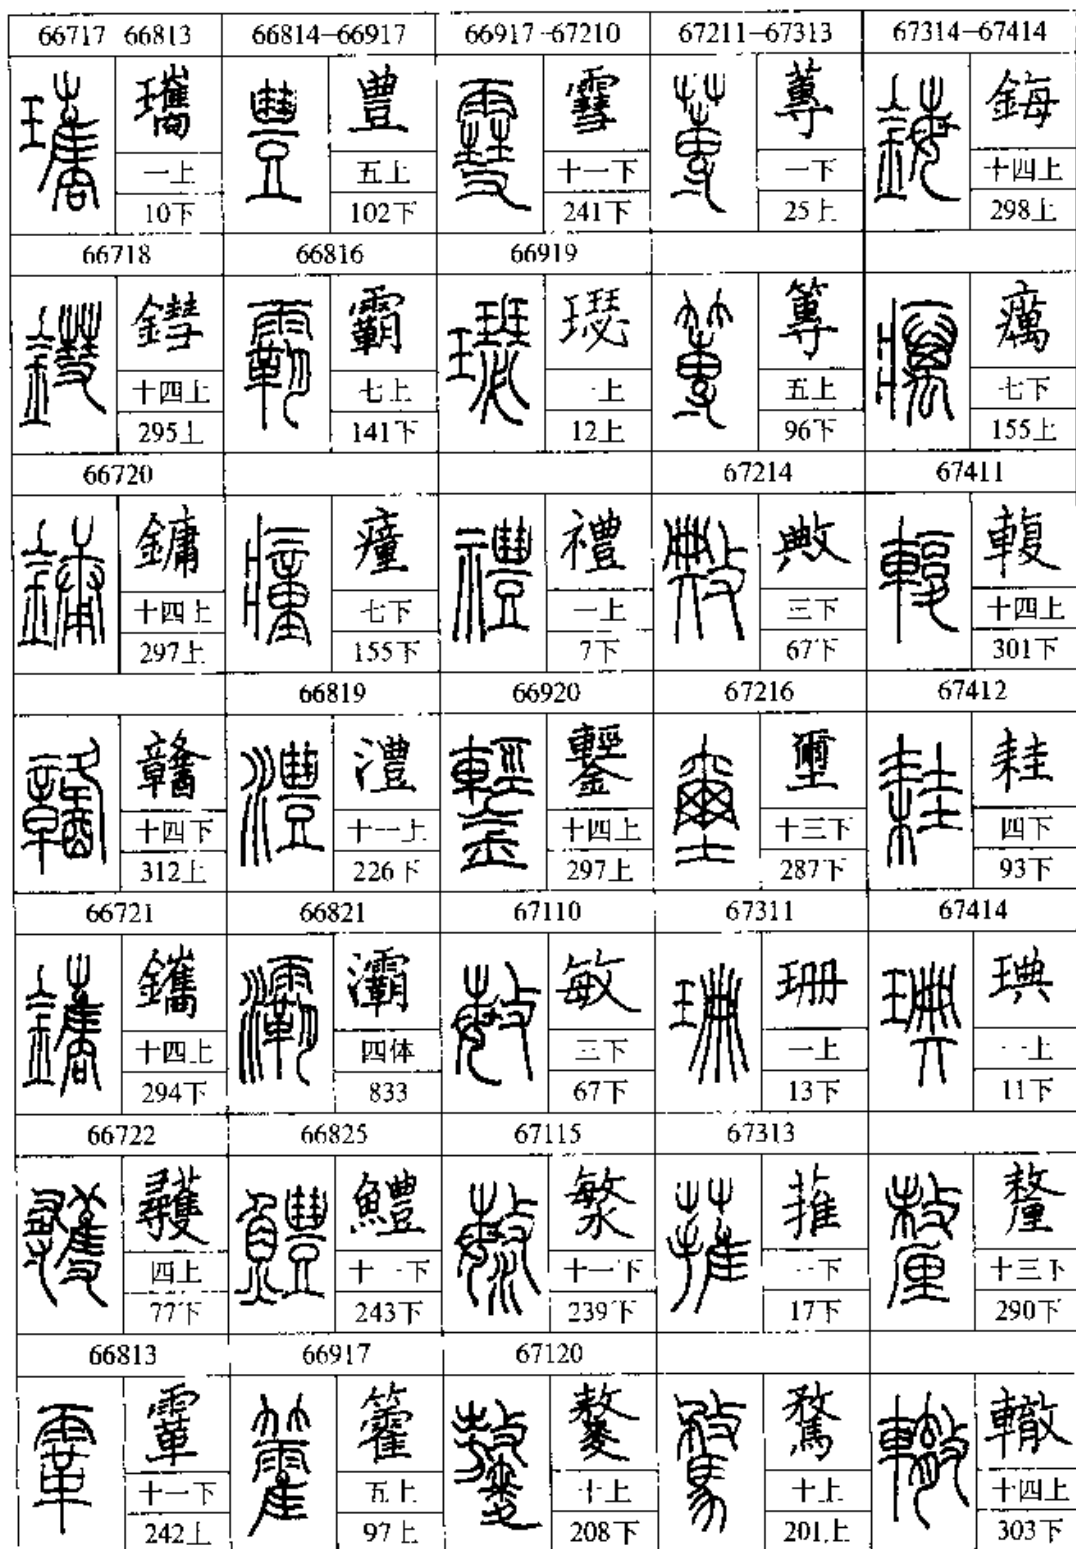 66717 66813
瓗
一上
10下
66718
鏏
十四上
295上
66720
鏞
十四上
297上
十四下
312上
66721
鑴
十四上
294下
66722
彠
四上
77下
66813
十一下
242上
66814–66917
豊
五上
102下
66816
霸
七上
141下
七下
155下
66819
澧
十一上
226下
66821
灞
四体
833
66825
鱧
十一下
243下
66917
籗
五上
97上
66917–67210
䨮
十一下
241下
66919
璱
一上
12上
禮
一上
7下
66920
十四上
297上
67110
敏
三下
67下
67115
十一下
239下
67120
十上
208下
67211–67313
蓴
一下
25上
篿
五上
96下
67214
敟
三下
67下
67216
壐
十三下
287下
67311
珊
一上
13下
67313
蓷
一下
17下
十上
201上
67314–67414
鋂
十四上
298上
癘
七下
155上
67411
輹
十四上
301下
67412
四下
93下
67414
琠
一上
11下
釐
十三下
290下
轍
十四上
303下